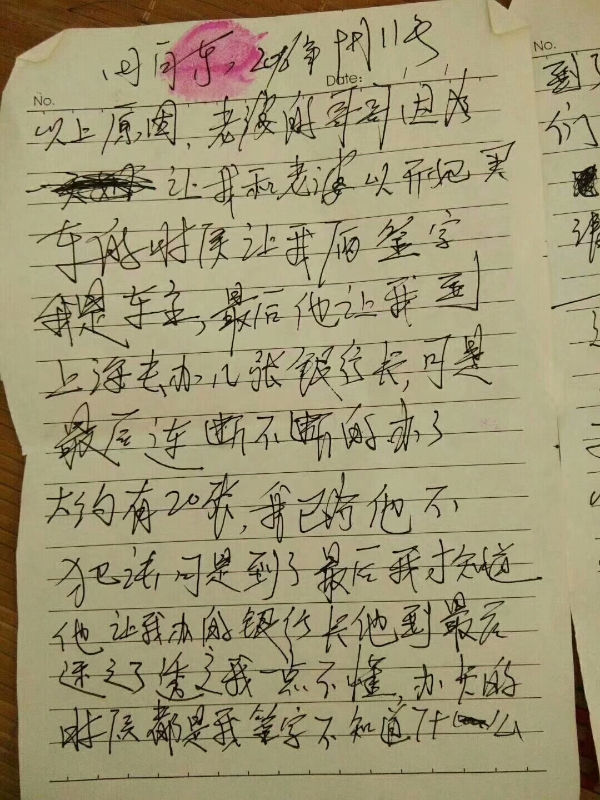 2016年 月11号
No.
Date:
以上原因,老婆的哥哥因为
让我和老婆以开始买
车的时候让我俩签字
我是车主,最后他让我到
上海去办几张银行卡,可是
最后连断不断的办了
大约有20张,我已为他不
犯法,可是到了最后我才知道
他让我办的银行卡他到最后
透支了透支我一点不懂,办卡的
时候都是我签字不知道什么
No.
到了
们